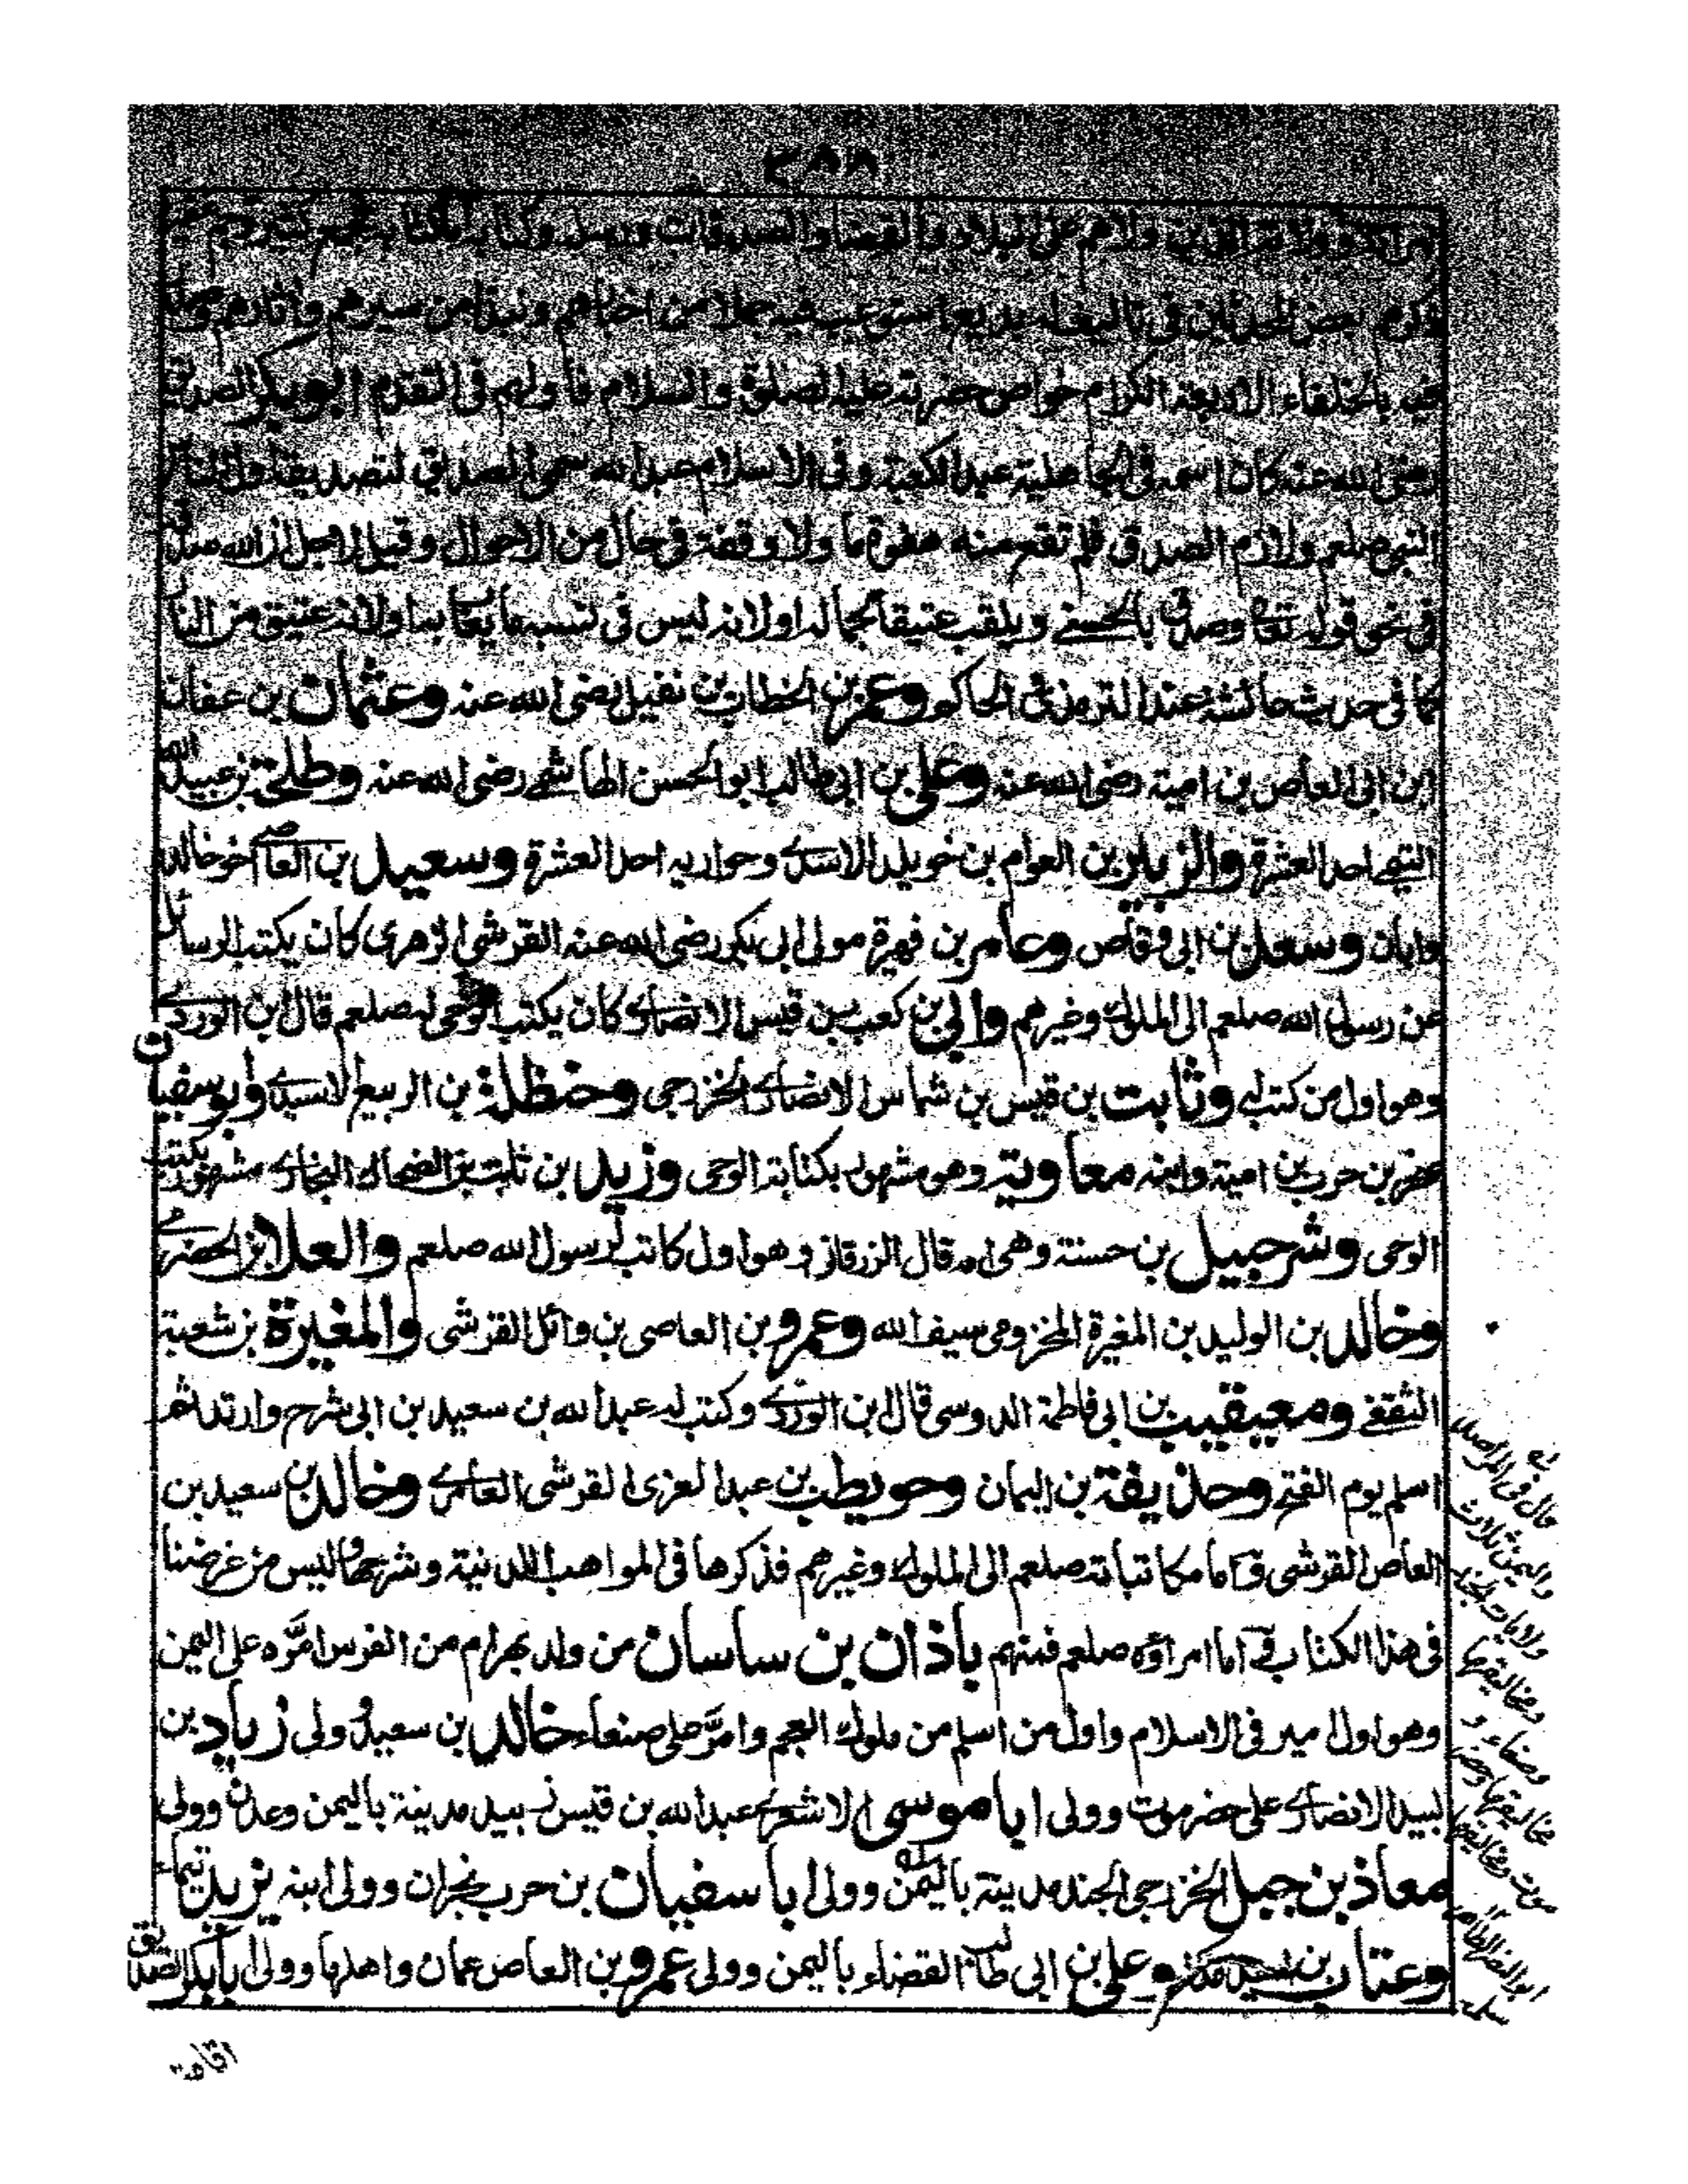 ٣٨٨
وولاهم على البلاد والقضا والصدقات ورسله وكتابه
بعض المحدثين في تاليف له بديع استوعب فيه جملا من اخبارهم ونبذا من سيرهم وآثارهم
بالخلفاء الاربعة الكرام خواص حضرته عليه الصلوة والسلام فاولهم في التقدم ابوبكر الصديق
رضى الله عنه كان اسمه في الجاهلية عبد الكعبة وفي الاسلام عبد الله سمي الصديق لتصديقه اول الناس
النبى صلعم ولازم الصدق فلم تقع منه هفوة ما ولا وقفة في حال من الاحوال وقيل لاجل ان الله صدقه
في نحو قوله تعا وصدق بالحسنے ويلقب عتيقا لجماله اولانه ليس في نسبه ما يعاب به اولانه عتيق من النار
كما في حديث عائشة عند الترمذي الحاكم وعمر بن الخطاب بن نفيل رضى الله عنه وعثمان بن عفان
ابن ابى العاص بن امية رضى الله عنه وعلى بن ابى طالب ابوالحسن الهاشمے رضى الله عنه وطلحة بن عبيد الله
التيمے احد العشرة والزبير بن العوام بن خويلد الاسدے وحواريه احد العشرة وسعيد بن العاصے اخو خالد
وابان وسعد بن ابى وقاص وعامر بن فهيرة مولى ابى بكر رضى الله عنه القرشى الزهرى كان يكتب الرسائل
عن رسول الله صلعم الى الملوك وغيرهم وابى بن كعب بن قيس الانصارے كان يكتب الوحى له صلعم قال ابن الوردے
وهو اول من كتب له وثابت بن قيس بن شماس الانصارے الخزرجى وحنظلة بن الربيع الاسيدے وابوسفيان
صخر بن حرب بن امية وابنه معاوية وهو مشهور بكتابة الوحى وزيد بن ثابت بن الضحاك النجارے مشهور يكتب
الوحى وشرحبيل بن حسنة وهى امه قال الزرقانى وهو اول كاتب لرسول الله صلعم والعلا بن الحضرمے
وخالد بن الوليد بن المغيرة المخزومى سيف الله وعمرو بن العاصى بن وائل القرشى والمغيرة بن شعبة
الثقفے ومعيقيب بن ابى فاطمة الدوسى قال ابن الوردے وكتب له عبد الله بن سعيد بن ابى شرح وارتد ثم
اسلم يوم الفتح وحذيفة بن اليمان وحويطب بن عبد العزى القرشى العامرے وخالد بن سعيد بن
العاص القرشى واما مكاتباته صلعم الى الملوك وغيرهم فذكرها في المواهب اللدنية وشرحها وليس من غرضنا
في هذا الكتاب اما امراؤه صلعم فمنهم باذان بن ساسان من ولد بهرام من الفرس امّره على اليمن
وهو اول امير في الاسلام واول من اسلم من ملوك العجم وامّر على صنعاء خالد بن سعيد وولى زياد بن
لبيد الانصارے على حضرموت وولى ابا موسى الاشعرے عبد الله بن قيس زبيد مدينة باليمن وعدن وولى
معاذ بن جبل الخزرجى الجند مدينة باليمن وولى ابا سفيان بن حرب نجران وولى ابنه يزيد تيماء
وعتاب بن اسيد مكة وعلى بن ابى طالب القضاء باليمن وولى عمرو بن العاص عمان واهلها وولى ابابكر الصديق
اقامة
قال في المراصد
واليمن ثلاث
ولايات الجند
ومخاليفها
وصنعاء و
مخاليفها وحضر
موت ومخاليفها